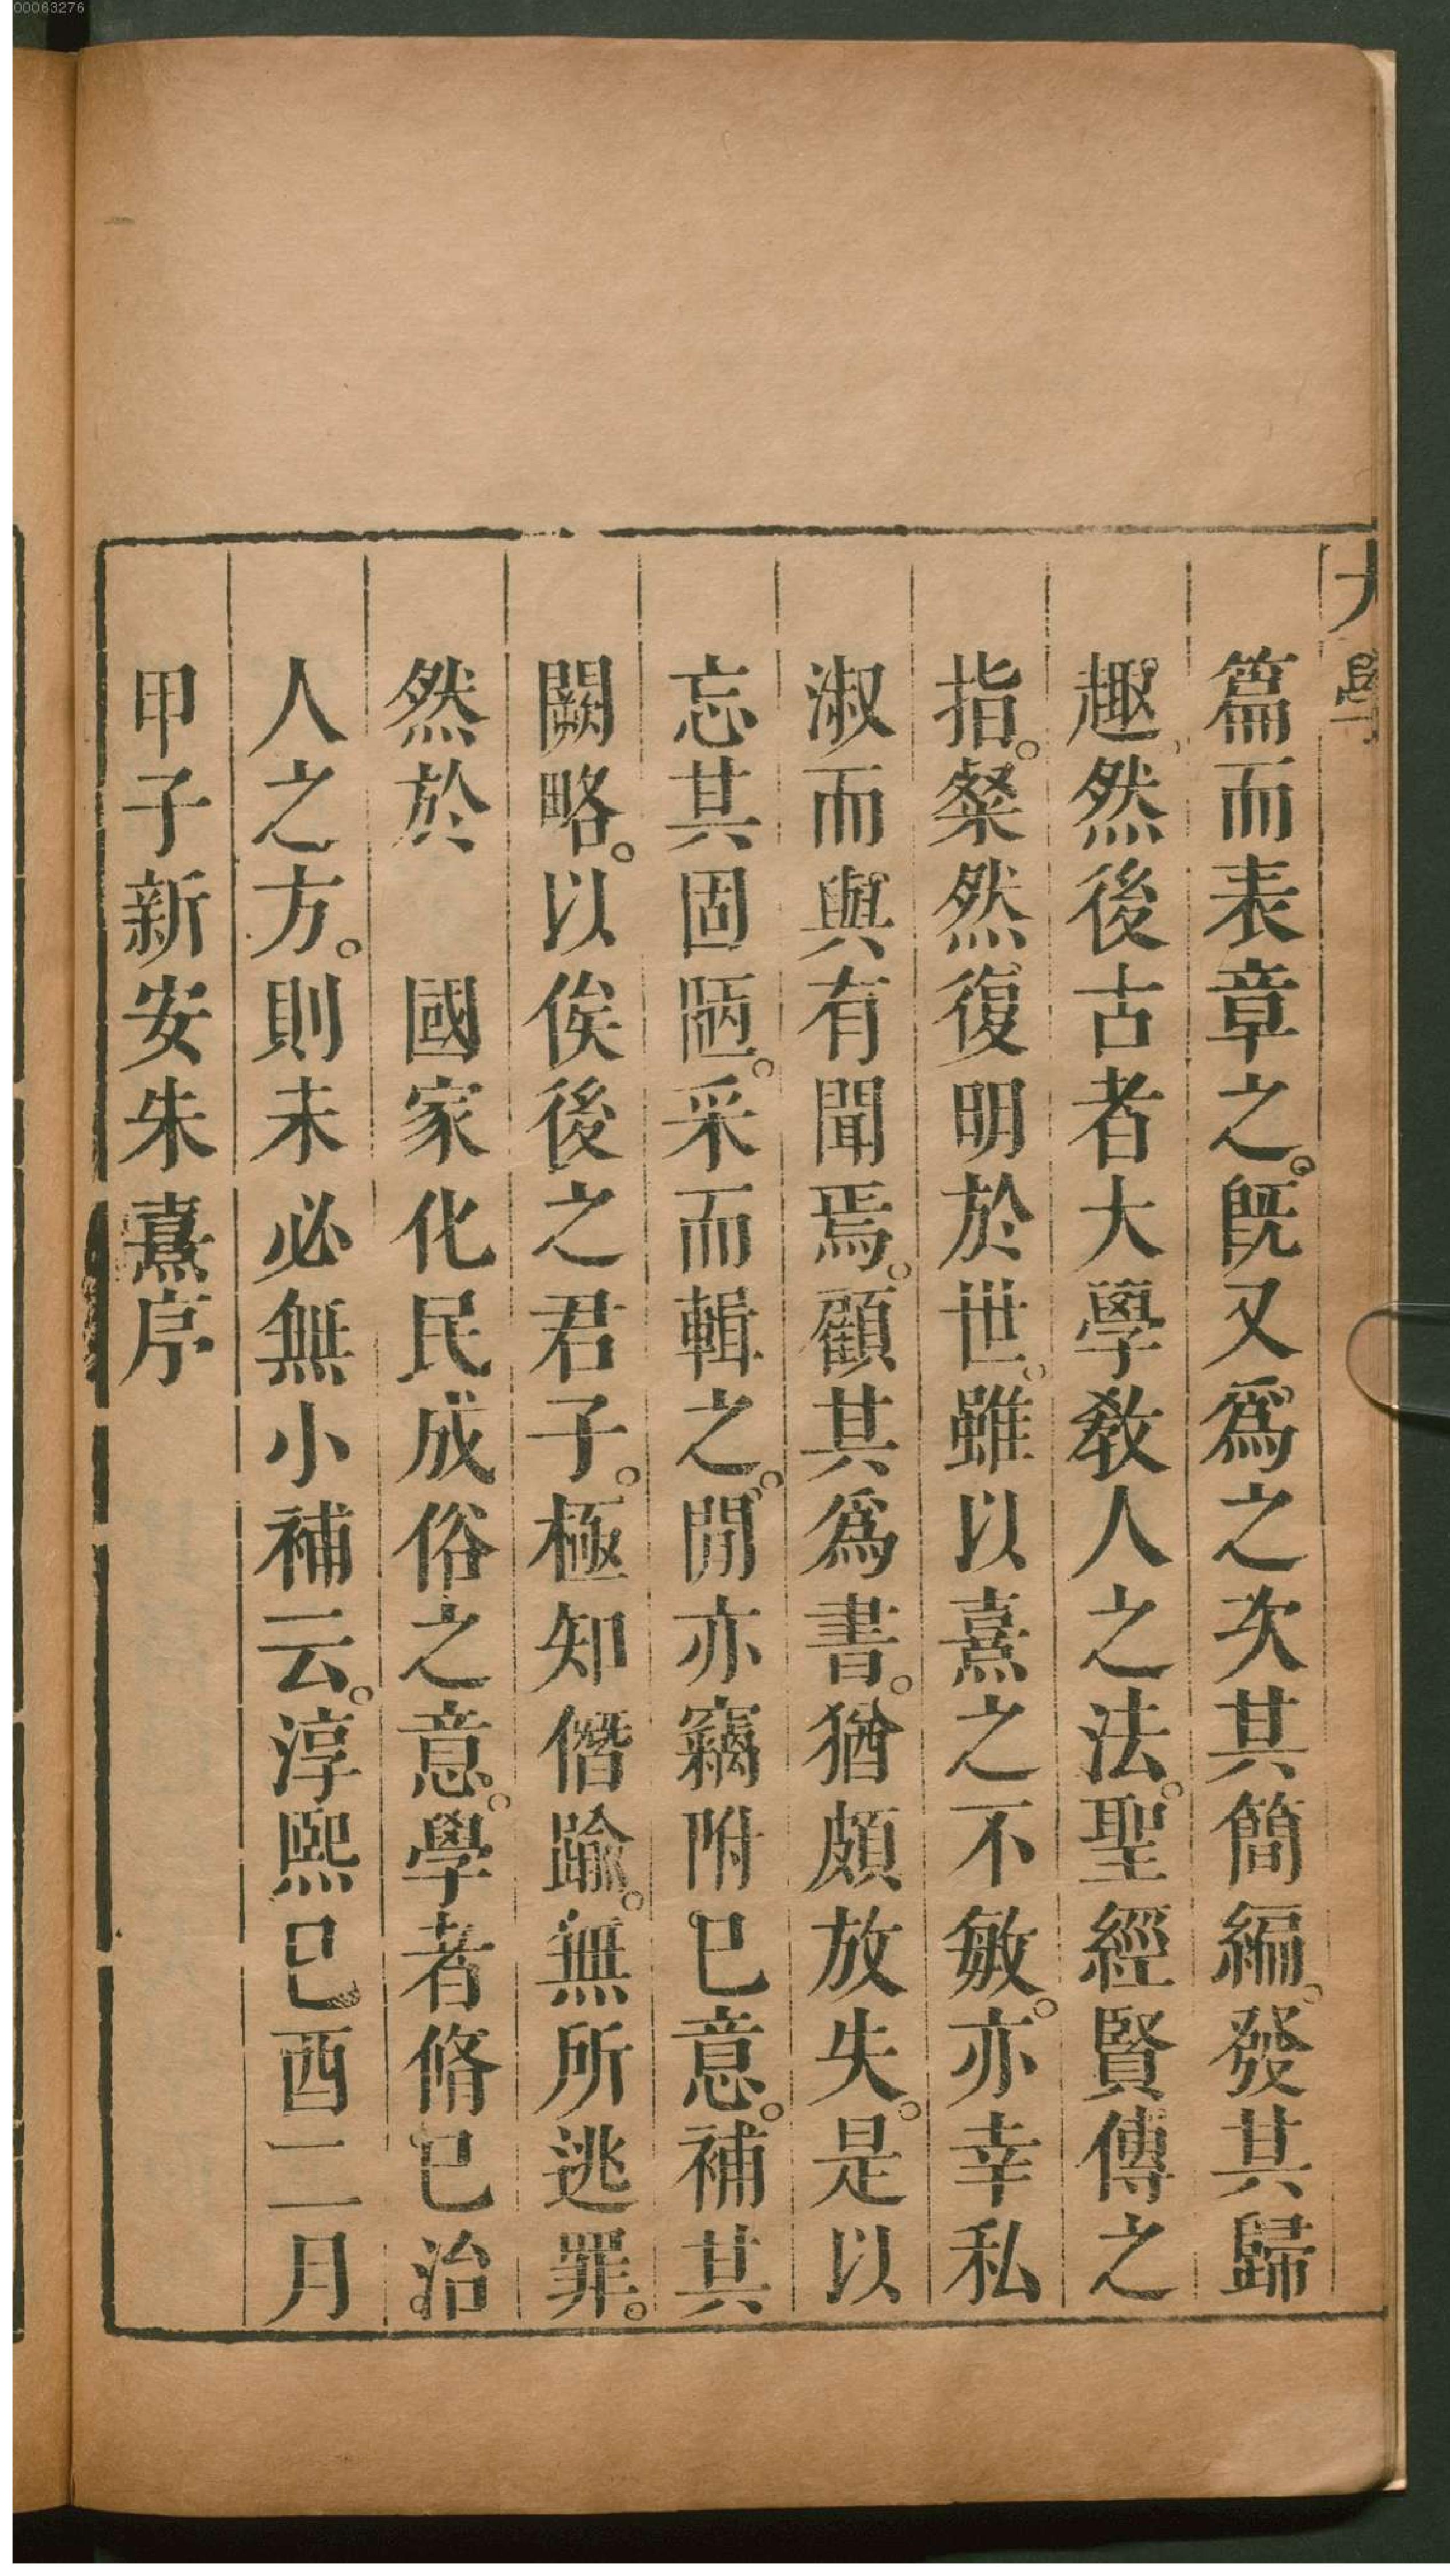 00063276
大學
篇而表章之。旣又爲之次其簡編。發其歸
趣。然後古者大學敎人之法。聖經賢傳之
指。粲然復明於世。雖以熹之不敏。亦幸私
淑而與有聞焉。顧其爲書。猶頗放失。是以
忘其固陋。采而輯之。閒亦竊附巳意。補其
闕略。以俟後之君子。極知僭踰。無所逃罪。
然於　國家化民成俗之意。學者脩巳治
人之方。則未必無小補云。淳熙巳酉二月
甲子新安朱熹序